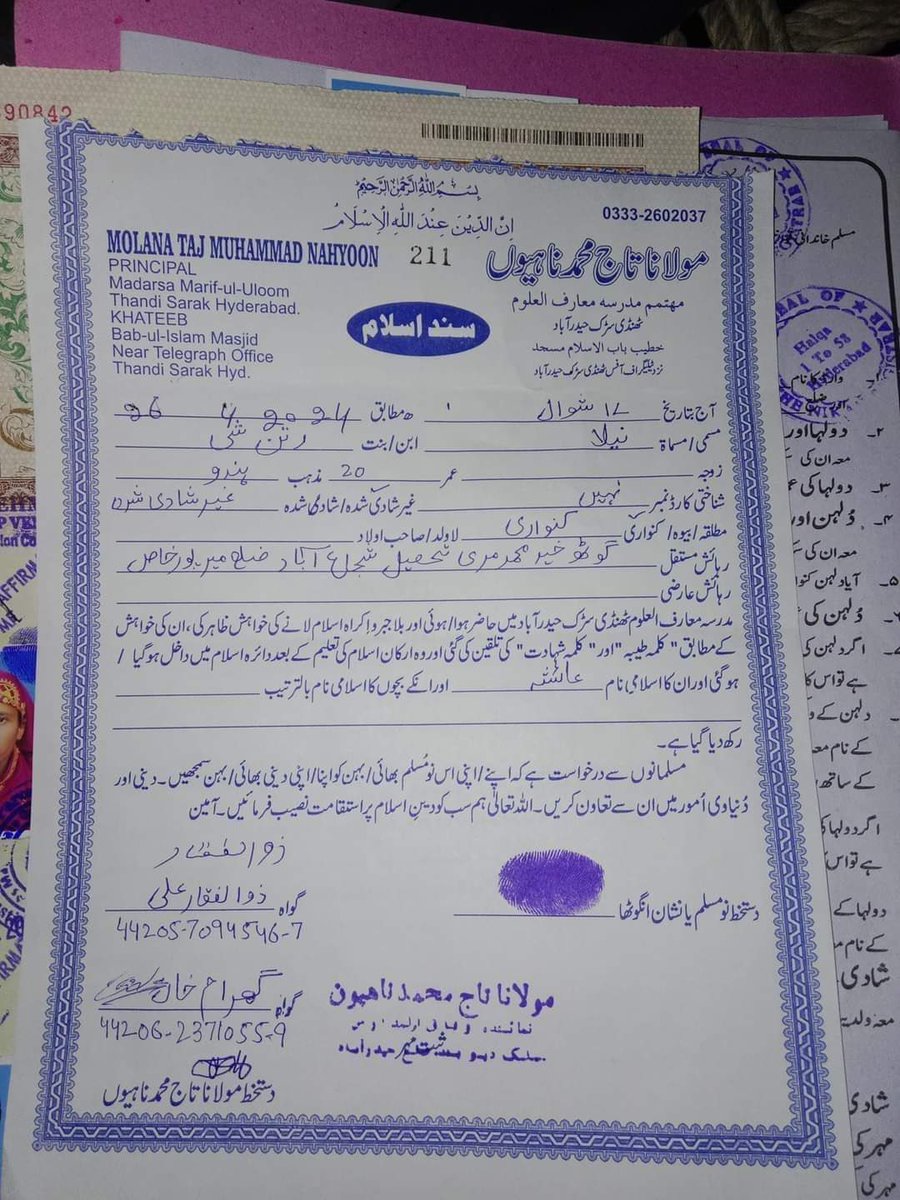 90842
بِسْمِ اللهِ الرَّحْمٰنِ الرَّحِيْمِ
اِنَّ الدِّيْنَ عِنْدَ اللهِ الْاِسْلَامُ
0333-2602037
MOLANA TAJ MUHAMMAD NAHYOON
211
مولانا تاج محمد ناہیوں
PRINCIPAL
Madarsa Marif-ul-Uloom
Thandi Sarak Hyderabad.
KHATEEB
Bab-ul-Islam Masjid
Near Telegraph Office
Thandi Sarak Hyd.
سند اسلام
مہتمم مدرسہ معارف العلوم
ٹھنڈی سڑک حیدرآباد
خطیب باب الاسلام مسجد
نزد ٹیلیگراف آفس ٹھنڈی سڑک حیدرآباد
آج بتاریخ ۱۶ شوال ھ مطابق 26 4 2024
مسمی/مسماۃ نیلا ابن/بنت رتن شی
زوجہ عمر 20 مذہب ہندو
شناختی کارڈ نمبر نہیں غیر شادی شدہ/شادی شدہ غیر شادی شدہ
مطلقہ/بیوہ/کنواری کنواری لاولد/صاحب اولاد
رہائش مستقل گوٹھ خیر محمد مری تحصیل شجاع آباد ضلع میرپور خاص
رہائش عارضی
مدرسہ معارف العلوم ٹھنڈی سڑک حیدرآباد میں حاضر ہوا/ہوئی اور بلا جبر و اکراہ اسلام لانے کی خواہش ظاہر کی، ان کی خواہش
کے مطابق "کلمہ طیبہ" اور "کلمہ شہادت" کی تلقین کی گئی اور وہ ارکان اسلام کی تعلیم کے بعد دائرہ اسلام میں داخل ہو گیا/
ہو گئی اور ان کا اسلامی نام عائشہ اور انکے بچوں کا اسلامی نام بالترتیب
رکھ دیا گیا ہے۔
مسلمانوں سے درخواست ہے کہ اپنے/اپنی اس نو مسلم بھائی/بہن کو اپنا/اپنی دینی بھائی/بہن سمجھیں۔ دینی اور
دُنیاوی اُمور میں ان سے تعاون کریں۔ اللہ تعالیٰ ہم سب کو دین اسلام پر استقامت نصیب فرمائیں۔ آمین
ذوالفقار
گواہ ذوالفقار علی
44205-7094546-7
دستخط نو مسلم یا نشان انگوٹھا
گواہ گھرام خان
44206-2371055-9
مولانا تاج محمد ناہیون
دستخط مولانا تاج محمد ناہیوں
مسلم خاندانی
SEAL OF
Halqa
1 To 58
Hyderabad
۲۔ دولہا اور
معہ ان کی
۳۔ دولہا کی
۴۔ دُلہن اور
معہ ان کی
۵۔ آیا دلہن کنوا
دُلہن کی
اگر دلہن
ہے تو اس کا
دلہن کے و
کے نام معہ
کے ساتھ
اگر دولہا
ہے تو اس
دولہا کے
کے نام
شادی
شادی
مہر کی
مہر کی